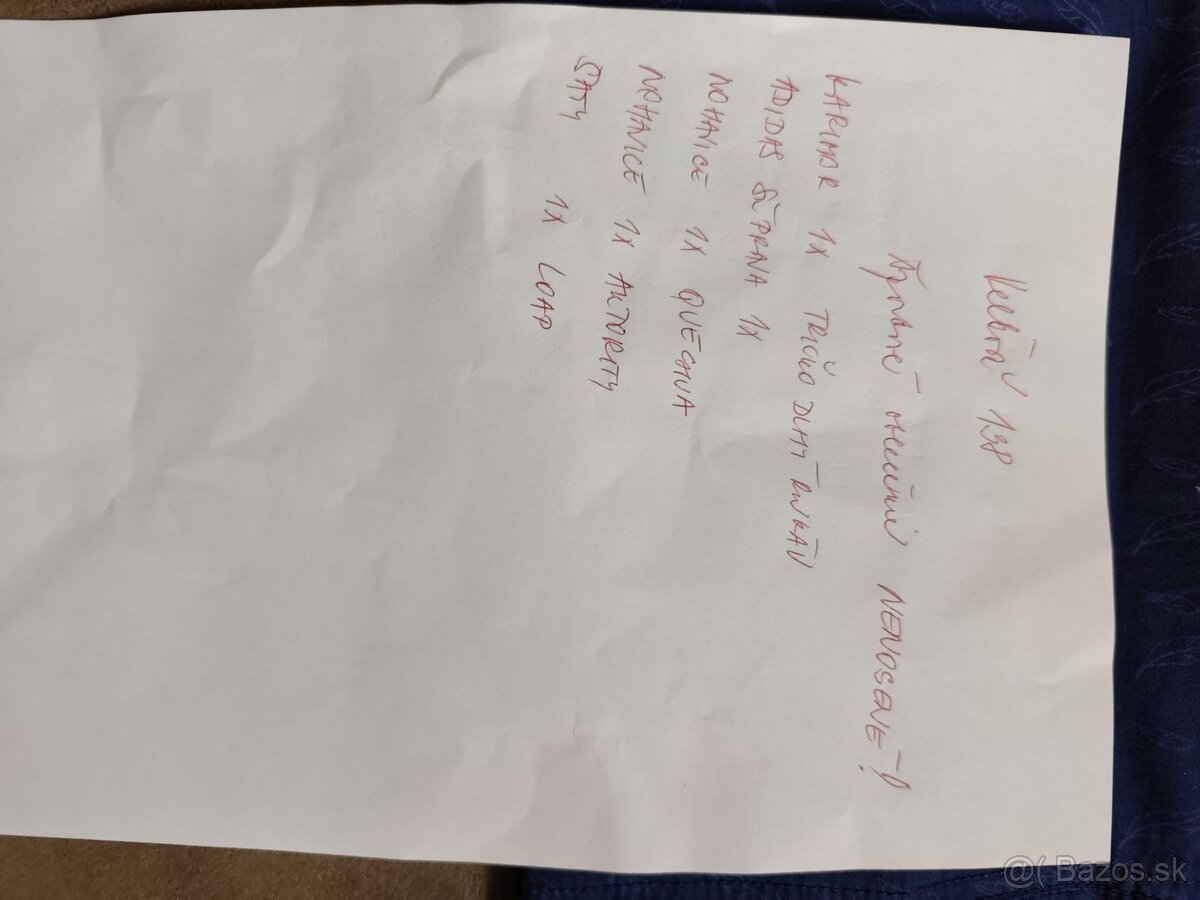 Veľkosť 138
NENOSENÉ!
KARIMOR 1X TRIČKO DLHÝ RUKÁV
ADIDAS SÚPRAVA 1X
NOHAVICE 1X QUECHUA
NOHAVICE 1X AUTORITY
ŠATY 1X LOAP
@( Bazos.sk